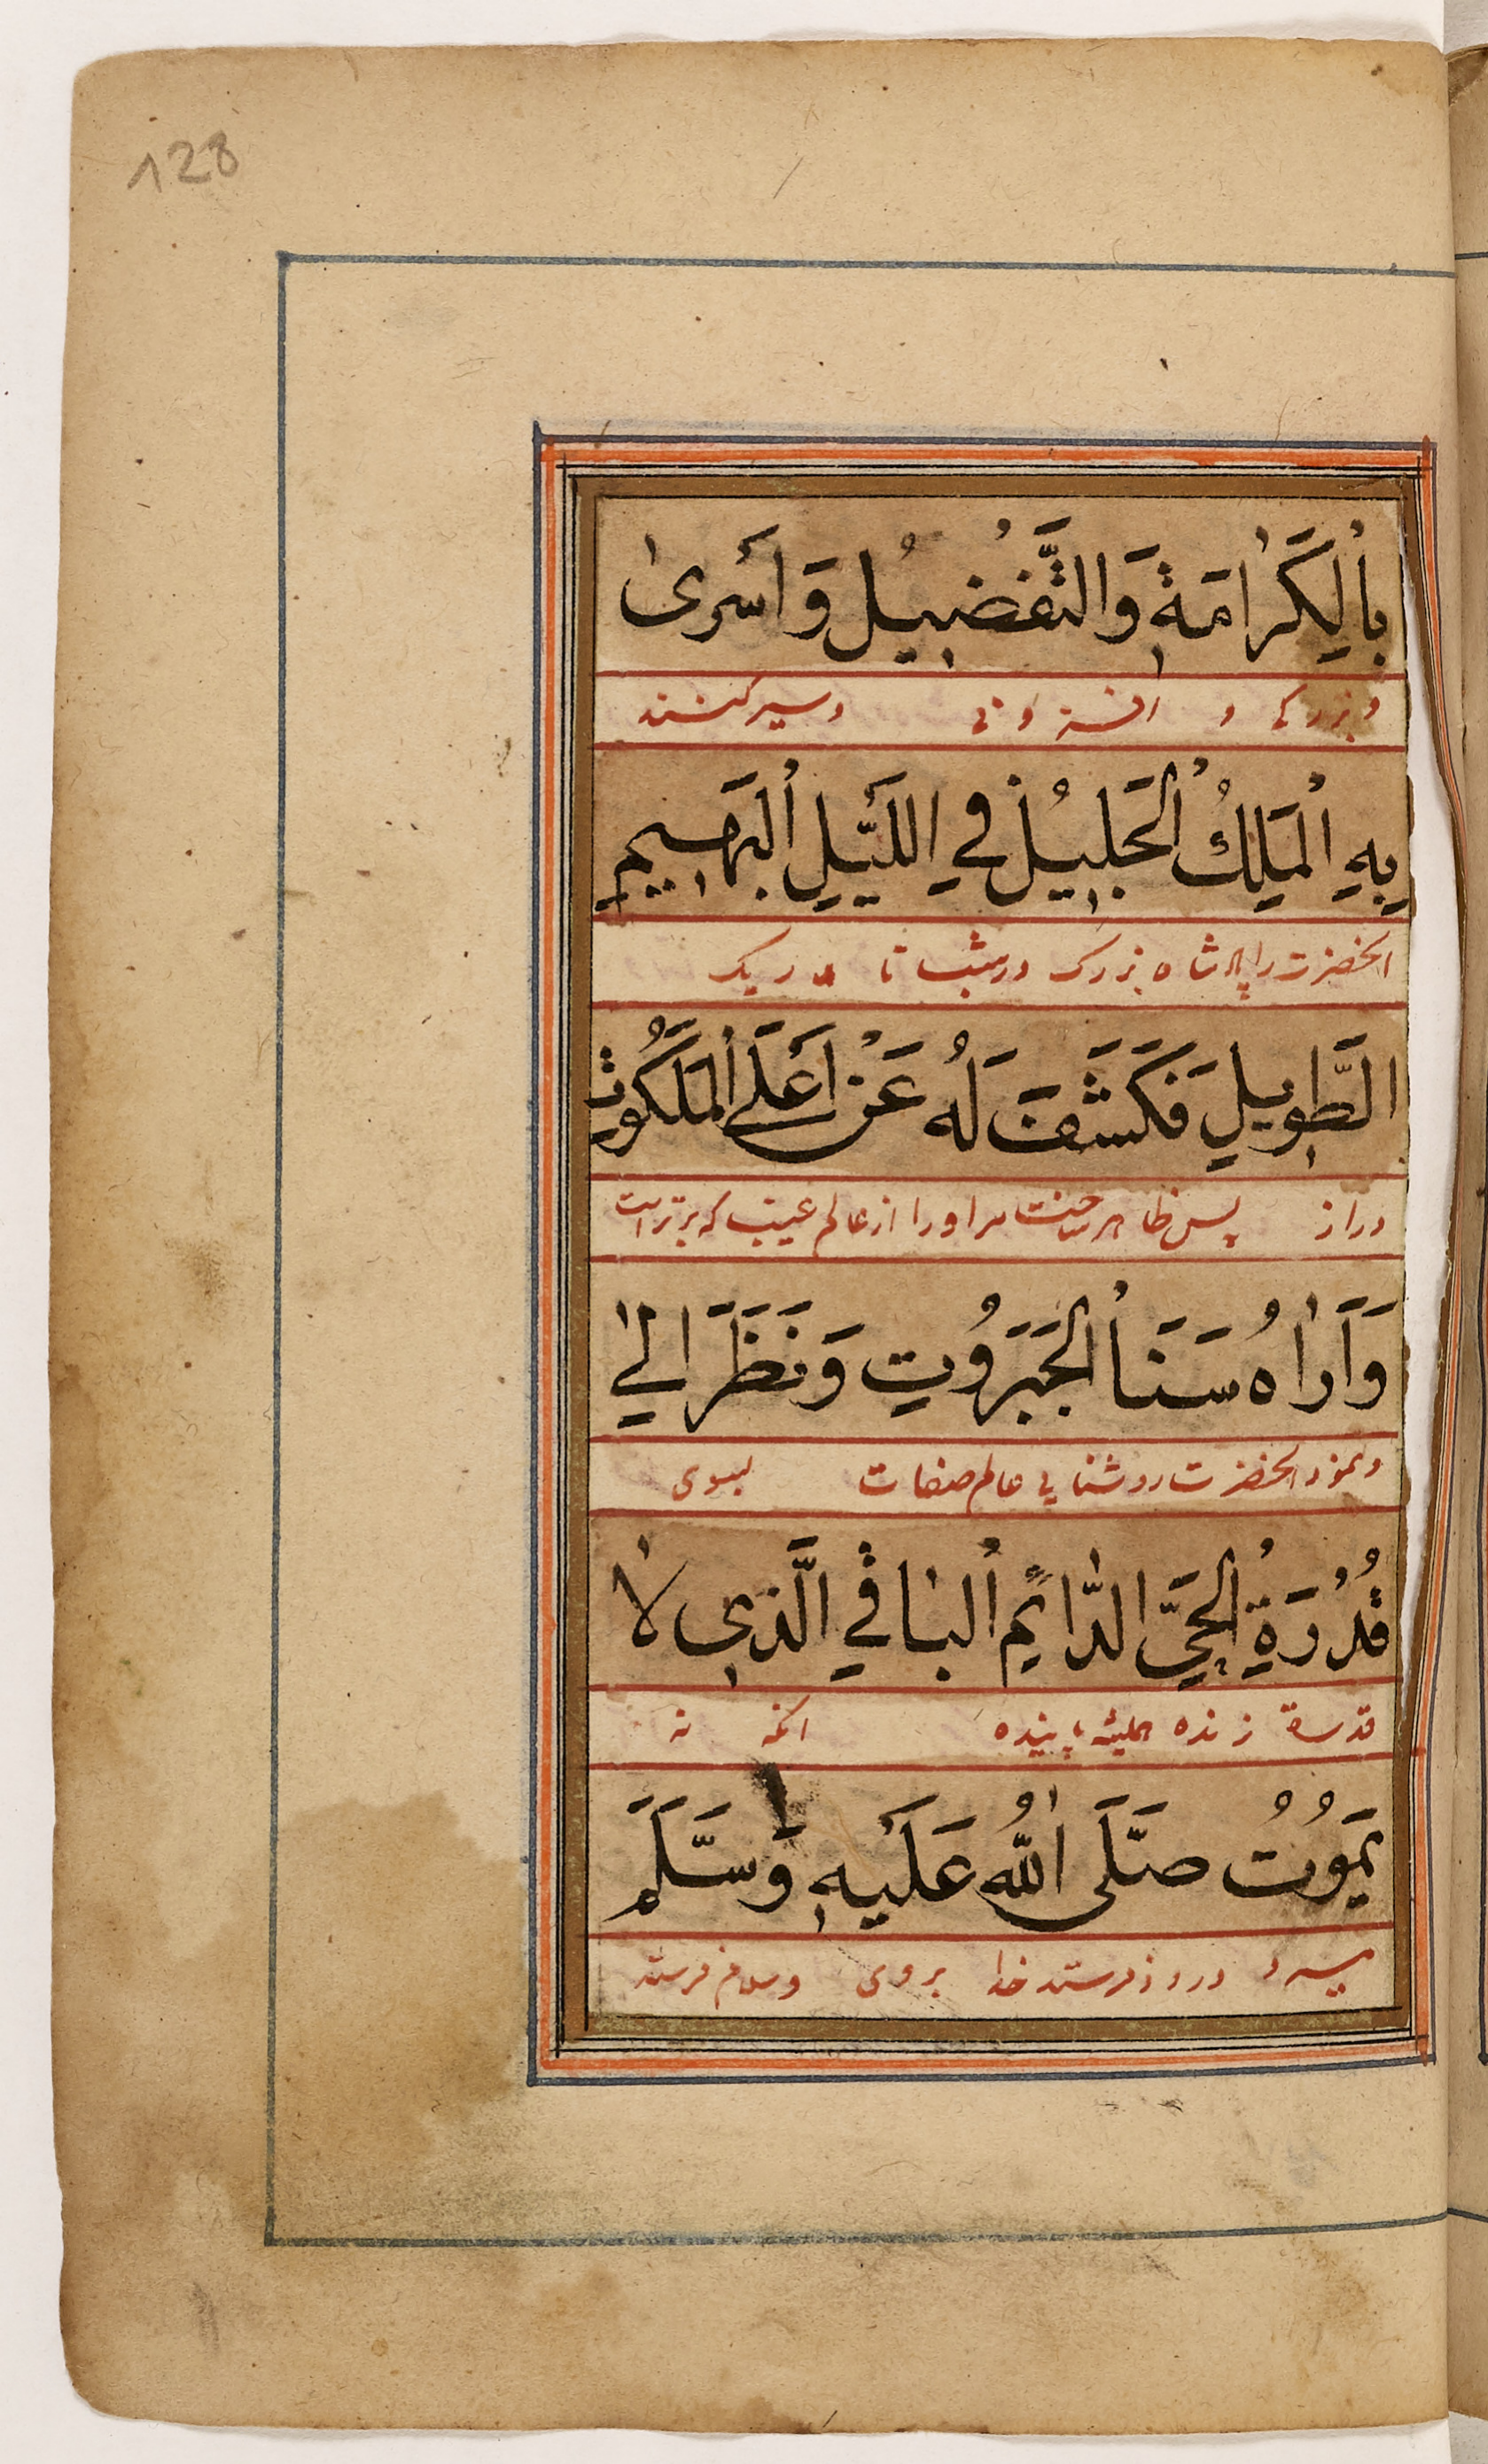 128
بِالْكَرَامَةِ وَالتَّفْضِيْلِ وَاَسْرٰى
و بزركى و افزونى وسير كنند
بِهِ الْمَلِكُ الْجَلِيْلُ فِي اللَّيْلِ الْبَهِيْمِ
انحضرت را پادشاه بزرك در شب تا ريك
الطَّوِيْلِ فَكَشَفَ لَهُ عَنْ اَعْلَى الْمَلَكُوْتِ
دراز پس ظاهر ساخت مر اورا از عالم غيب كه برتر است
وَاَرَاهُ سَنَا الْجَبَرُوْتِ وَنَظَرَ اِلٰي
ونمود انحضرت روشنايى عالم صفات بسوى
قُدْرَةِ الْحَيِّ الدَّائِمِ الْبَاقِي الَّذِي لَا
قدرة زنده هميشه پاينده انكه نه
يَمُوْتُ صَلَّى اللّٰهُ عَلَيْهِ وَسَلَّمَ
ميرد درود فرستد خدا بروى وسلام فرستد